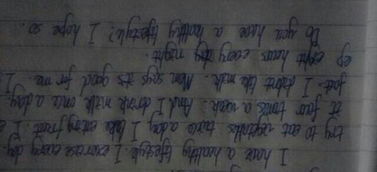 I have a healthy lifestyle. I exercise every day.
try to eat vegetables twice a day. I like eating fruit
four times a week. And I drink milk once a day
I don't like milk. Mum says its good for me. I
eight hours every night.
Do you have a healthy lifestyle? I hope so.